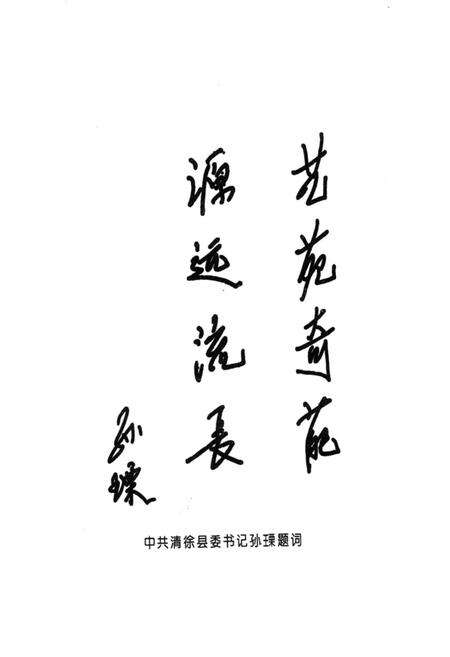 艺苑奇葩
源远流长
孙瑮
中共清徐县委书记孙瑮题词